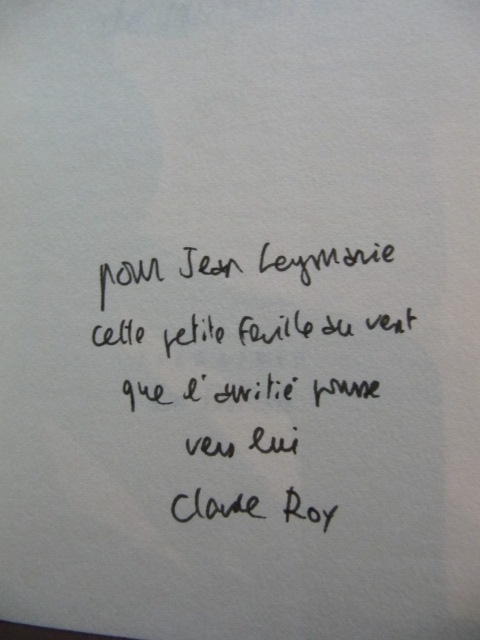 pour Jean Leymarie
cette petite feuille au vent
que l'amitié pousse
vers lui
Claude Roy